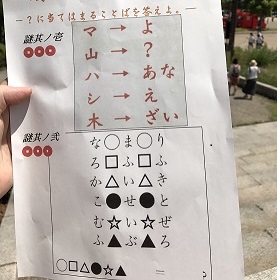 ?に当てはまることばを答えよ。
謎其ノ壱
マ→よ
山→?
ハ→あな
シ→え
木→ざい
謎其ノ弐
な○まり
ろ□ふふ
か△いき
こ●せ●と
む☆い☆ぜ
ふ▲ぶ▲ろ
○□△●☆▲ =